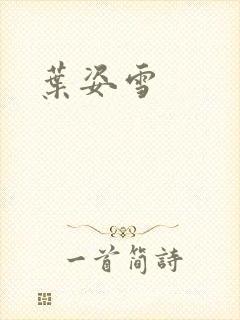 葉姿雪
一首简詩